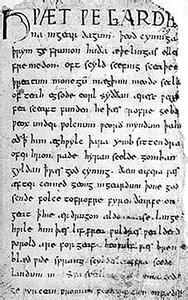 HǷÆT ǷE GARDE
na ingear dagum þeod cyninga
þrym ge frunon huða æþelingas elle
fremedon oft scyld scefing sceaþe
þreatum monegū mægþum meodo setla
of teah egsode eorl syððan ærest
fea sceaft funden he þæs frofre geba
ƿeox under ƿolcnum ƿeorð myndum þah
oð þ him æghƿylc þara ymb sittendra
ofer hron rade hyran scolde gomban
gyldan þ ƿæs god cyning ðæm eafera ƿæs
æfter cenned geong ingeardum þone god
sende folce tofrofre fyren ðearfe on
geat þ hie ær drugon aldor ase. lange
hƿile him þæs lif frea ƿuldres ƿealdend
ƿorold are for geaf. beoƿulf ƿæs breme
blæd ƿide sprang scyldes eafera scede
landum in
ge ƿyrcean fromum feoh giftum